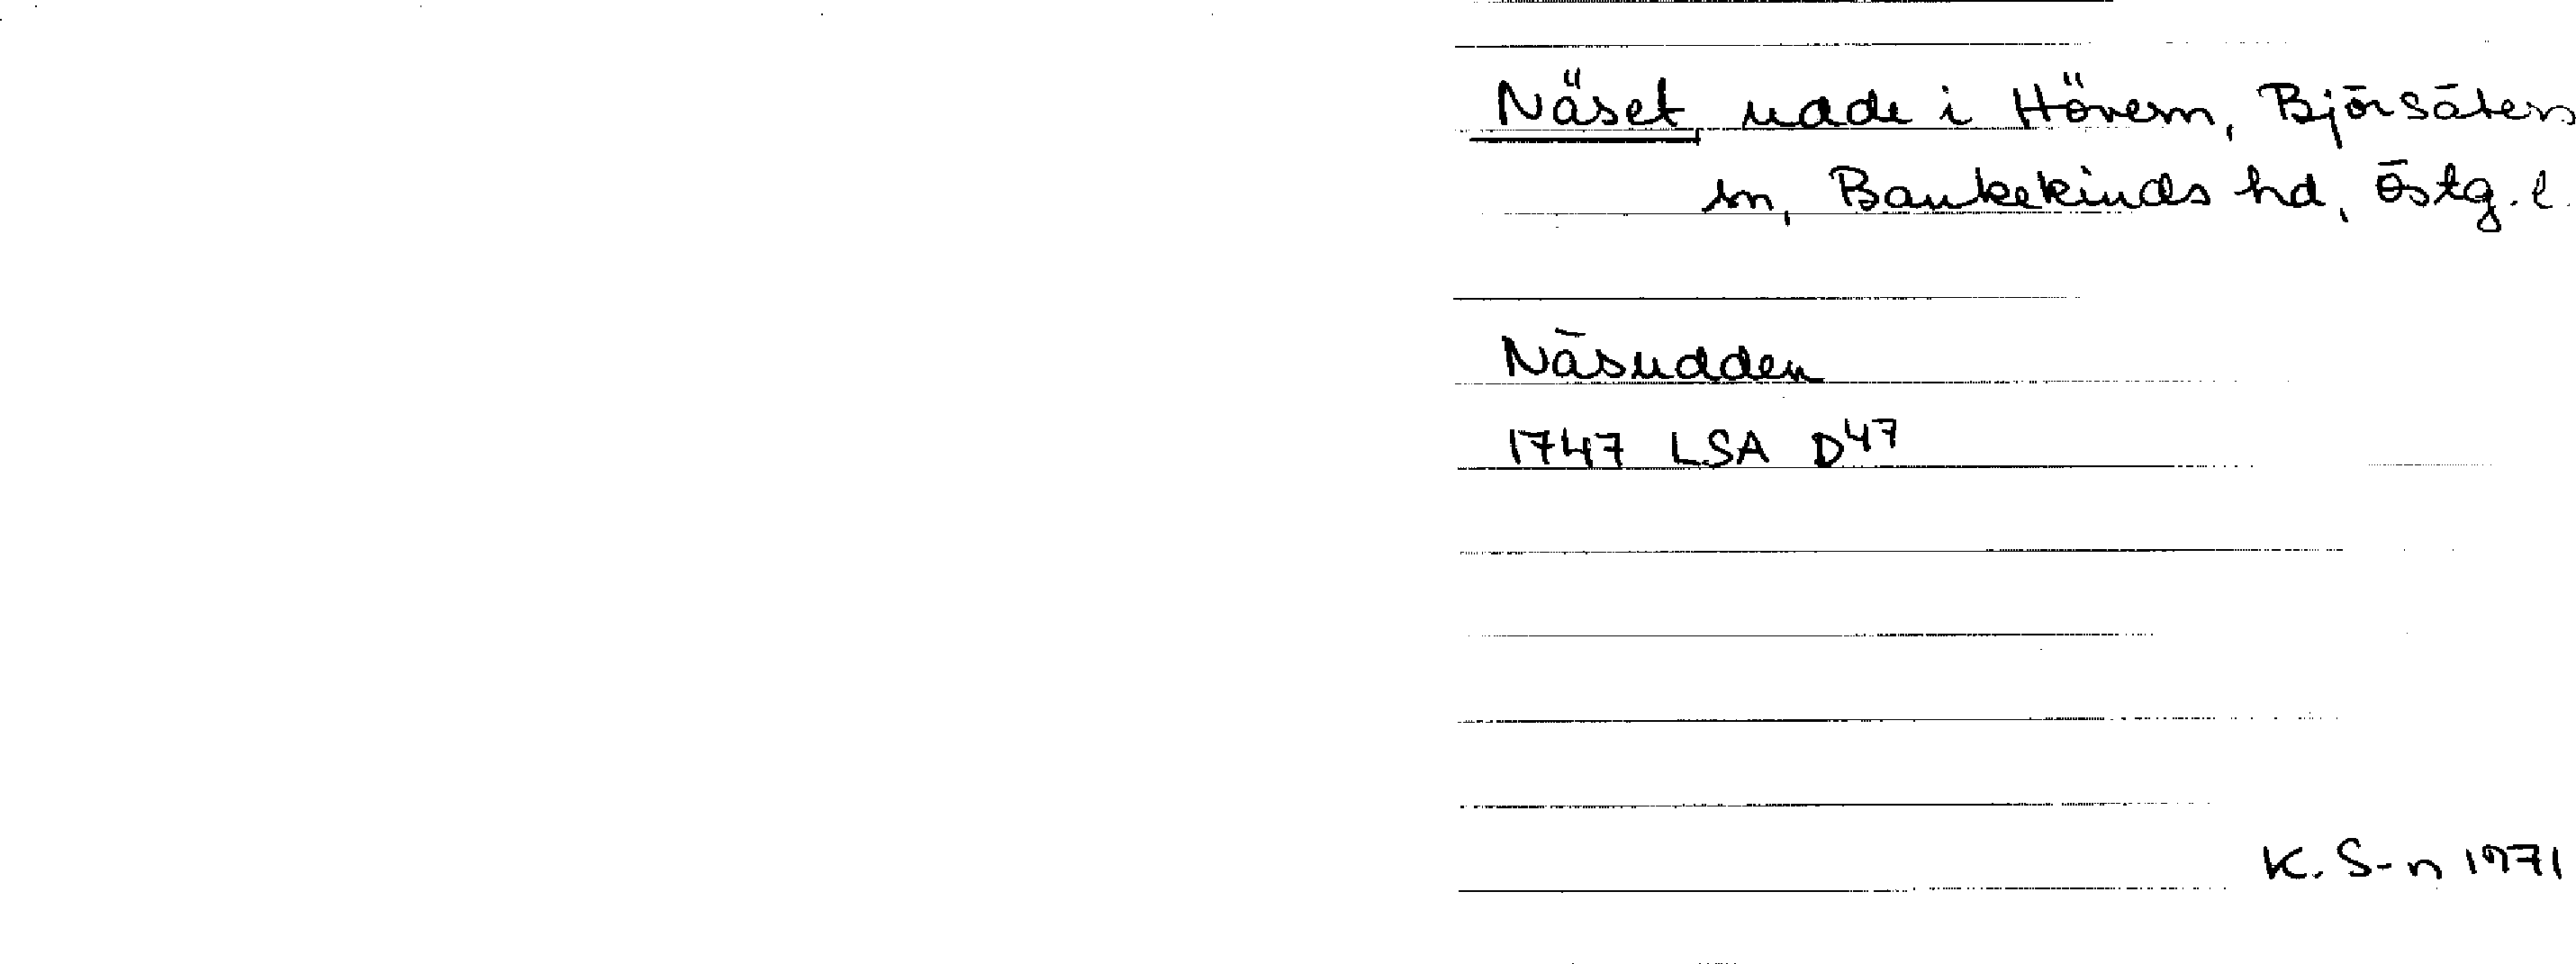 Näset, udde i Hövern, Björsäters
sn, Bankekinds hd, Östg. l.
Näsudden
1747 LSA D47
K. S-n 1971